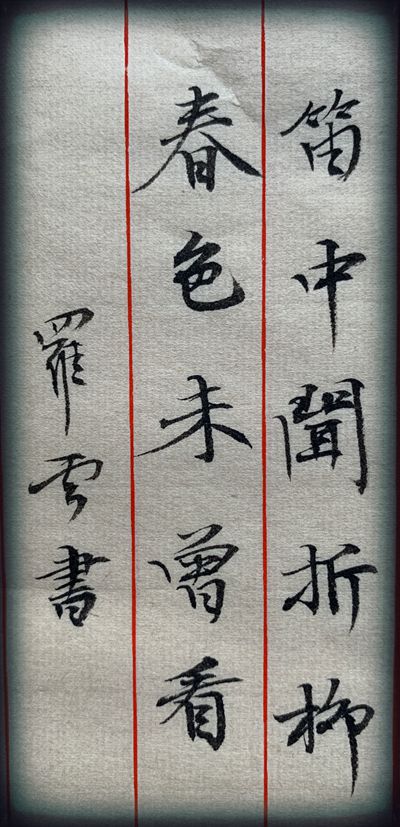 笛中聞折柳
春色未曾看
羅雲書